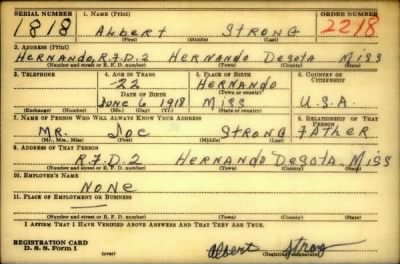 SERIAL NUMBER 1. NAME (Print) ORDER NUMBER
1818 ALBERT STRONG 2218
(First) (Middle) (Last)
2. ADDRESS (Print)
HERNANDO, R.F.D. 2 HERNANDO DESOTA MISS
(Number and street or R. F. D. number) (Town) (County) (State)
3. TELEPHONE 4. AGE IN YEARS 5. PLACE OF BIRTH 6. COUNTRY OF CITIZENSHIP
22 HERNANDO
DATE OF BIRTH (Town or county)
JUNE 6 1918 MISS U.S.A.
(Exchange) (Number) (Mo.) (Day) (Yr.) (State or country)
7. NAME OF PERSON WHO WILL ALWAYS KNOW YOUR ADDRESS 8. RELATIONSHIP OF THAT PERSON
MR. JOE STRONG FATHER
(Mr., Mrs., Miss) (First) (Middle) (Last)
9. ADDRESS OF THAT PERSON
R.F.D. 2 HERNANDO DESOTA. MISS
(Number and street or R. F. D. number) (Town) (County) (State)
10. EMPLOYER'S NAME
NONE
11. PLACE OF EMPLOYMENT OR BUSINESS
—
(Number and street or R. F. D. number) (Town) (County) (State)
I AFFIRM THAT I HAVE VERIFIED ABOVE ANSWERS AND THAT THEY ARE TRUE.
REGISTRATION CARD
D. S. S. Form 1 Albert Strong
(Registrant's signature)